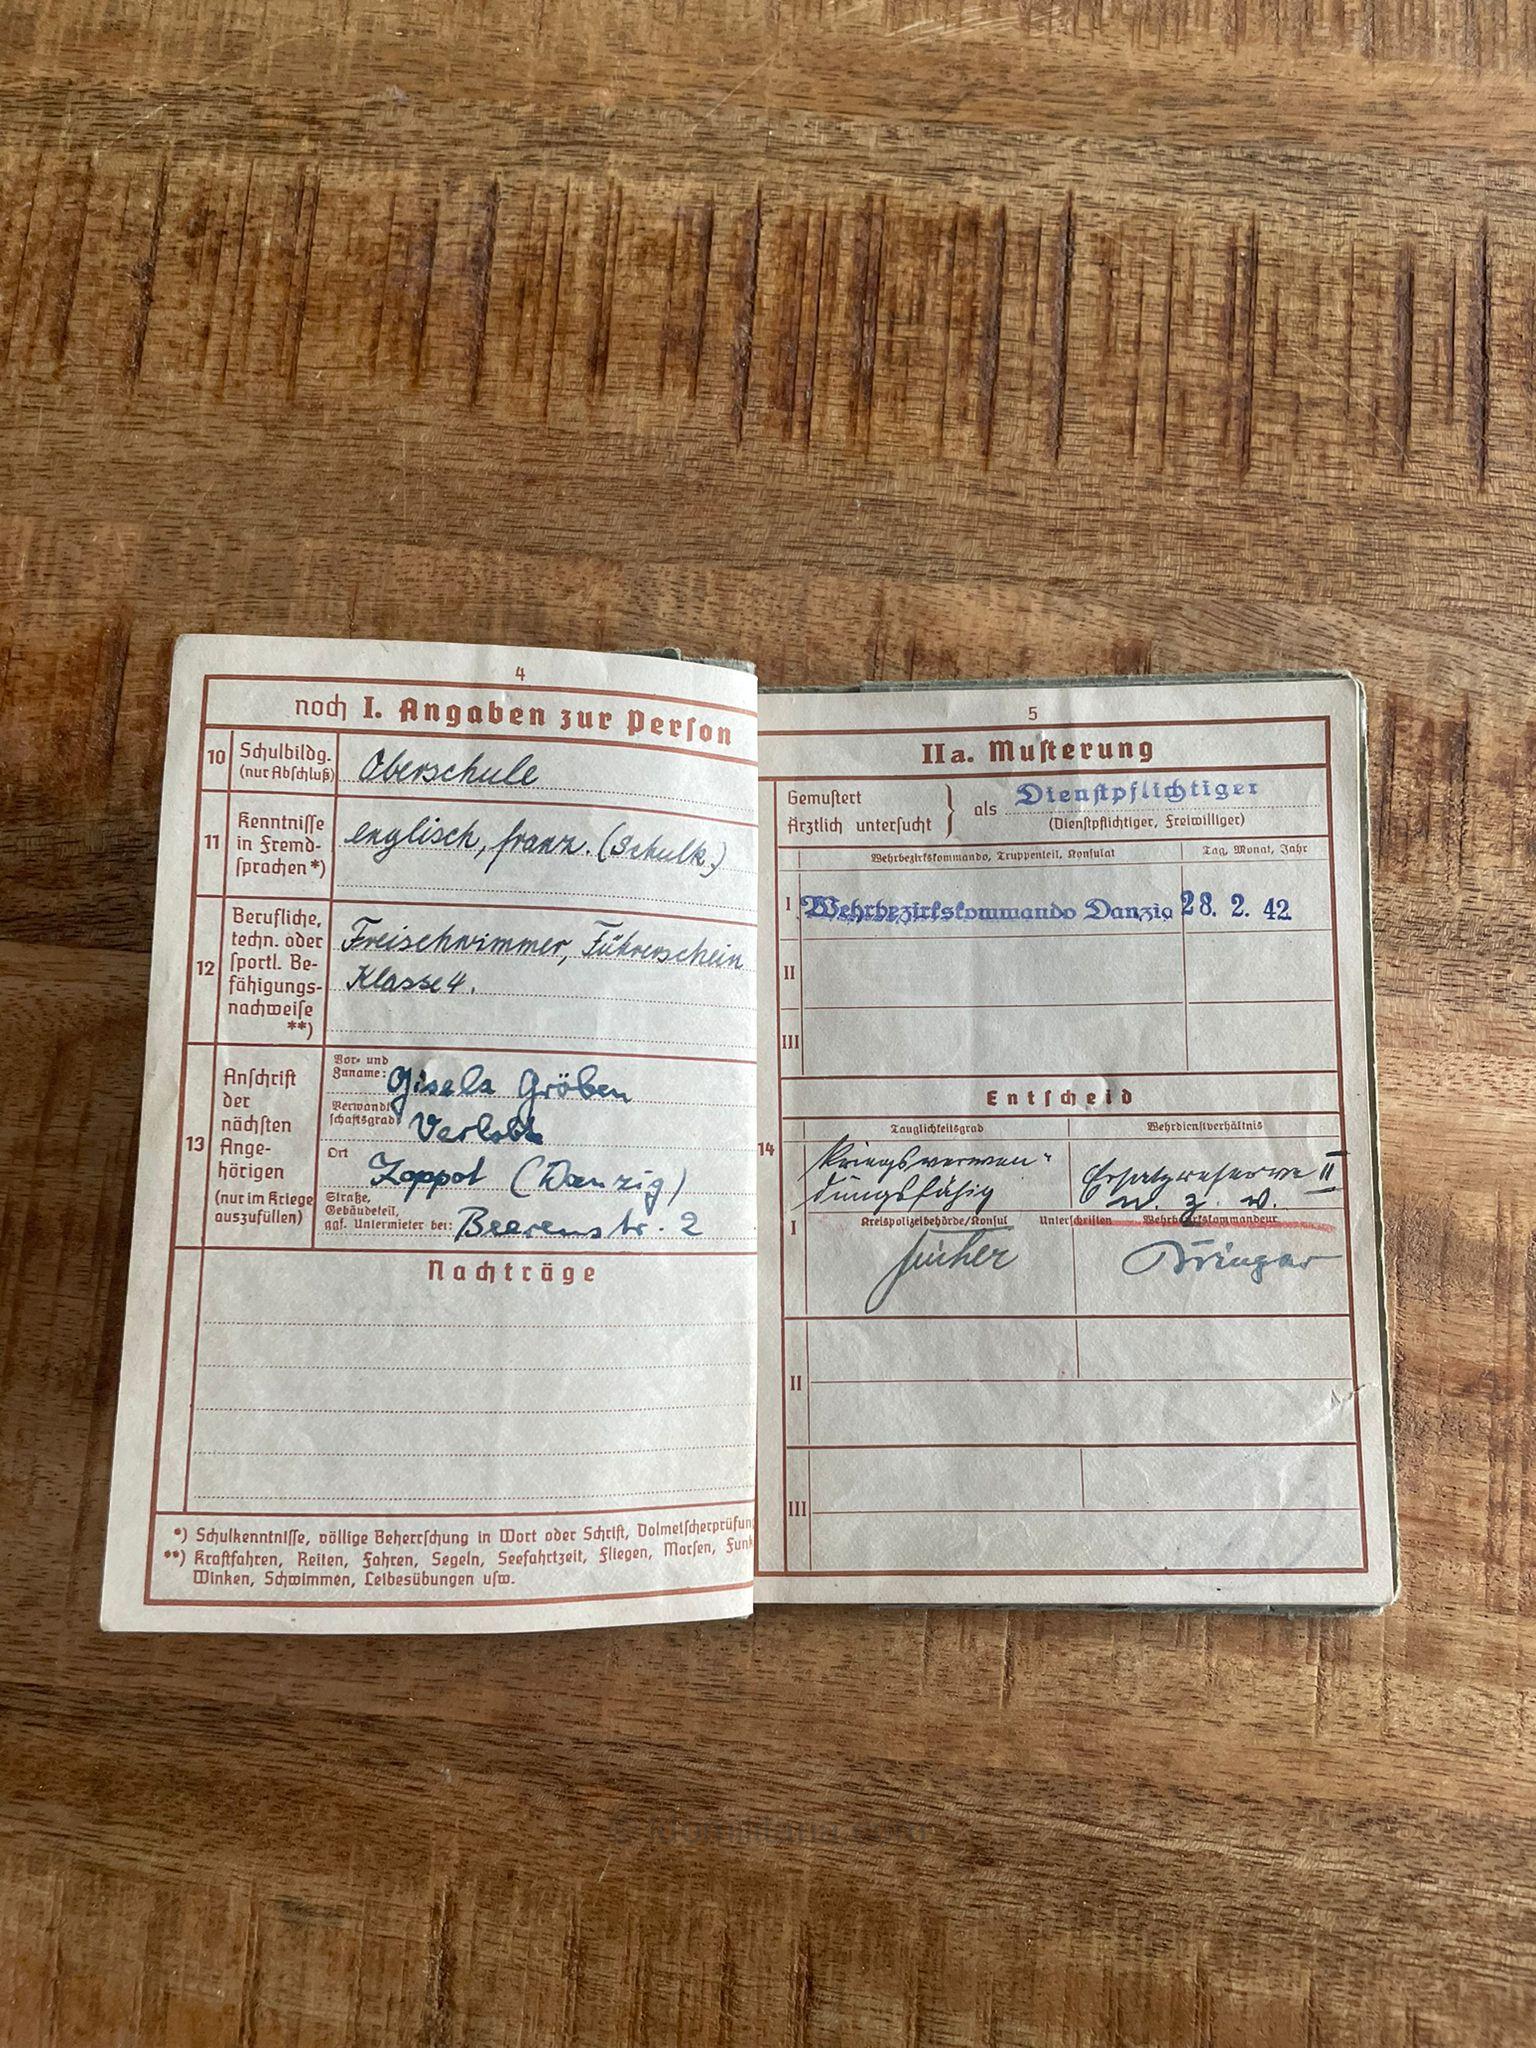 4
noch I. Angaben zur Person
10 Schulbildg. (nur Abschluß) Oberschule
11 Kenntnisse in Fremd-
sprachen *) englisch, franz. (Schulk.)
12 Berufliche,
techn. oder
sportl. Be-
fähigungs-
nachweise
**)
Freischwimmer, Führerschein
Klasse 4.
13 Anschrift
der
nächsten
Ange-
hörigen
(nur im Kriege
auszufüllen)
Vor- und
Zuname: Gisela Gröben
Verwandt-
schaftsgrad Verlobte
Ort Zoppot (Danzig)
Straße,
Gebäudeteil,
ggf. Untermieter bei: Beerenstr. 2
Nachträge
*) Schulkenntnisse, völlige Beherrschung in Wort oder Schrift, Dolmetscherprüfun
**) Kraftfahren, Reiten, Fahren, Segeln, Seefahrtzeit, Fliegen, Morsen, Funk
Winken, Schwimmen, Leibesübungen usw.
5
IIa. Musterung
Gemustert
Ärztlich untersucht } als Dienstpflichtiger
(Dienstpflichtiger, Freiwilliger)
Wehrbezirkskommando, Truppenteil, Konsulat
Tag, Monat, Jahr
I Wehrbezirkskommando Danzig 28. 2. 42
II
III
Entscheid
14
Tauglichkeitsgrad
Wehrdienstverhältnis
Kriegsverwen-
dungsfähig
Ersatzreserve II
I
Kreispolizeibehörde/Konsul Unterschriften Wehrbezirkskommandeur
II
III